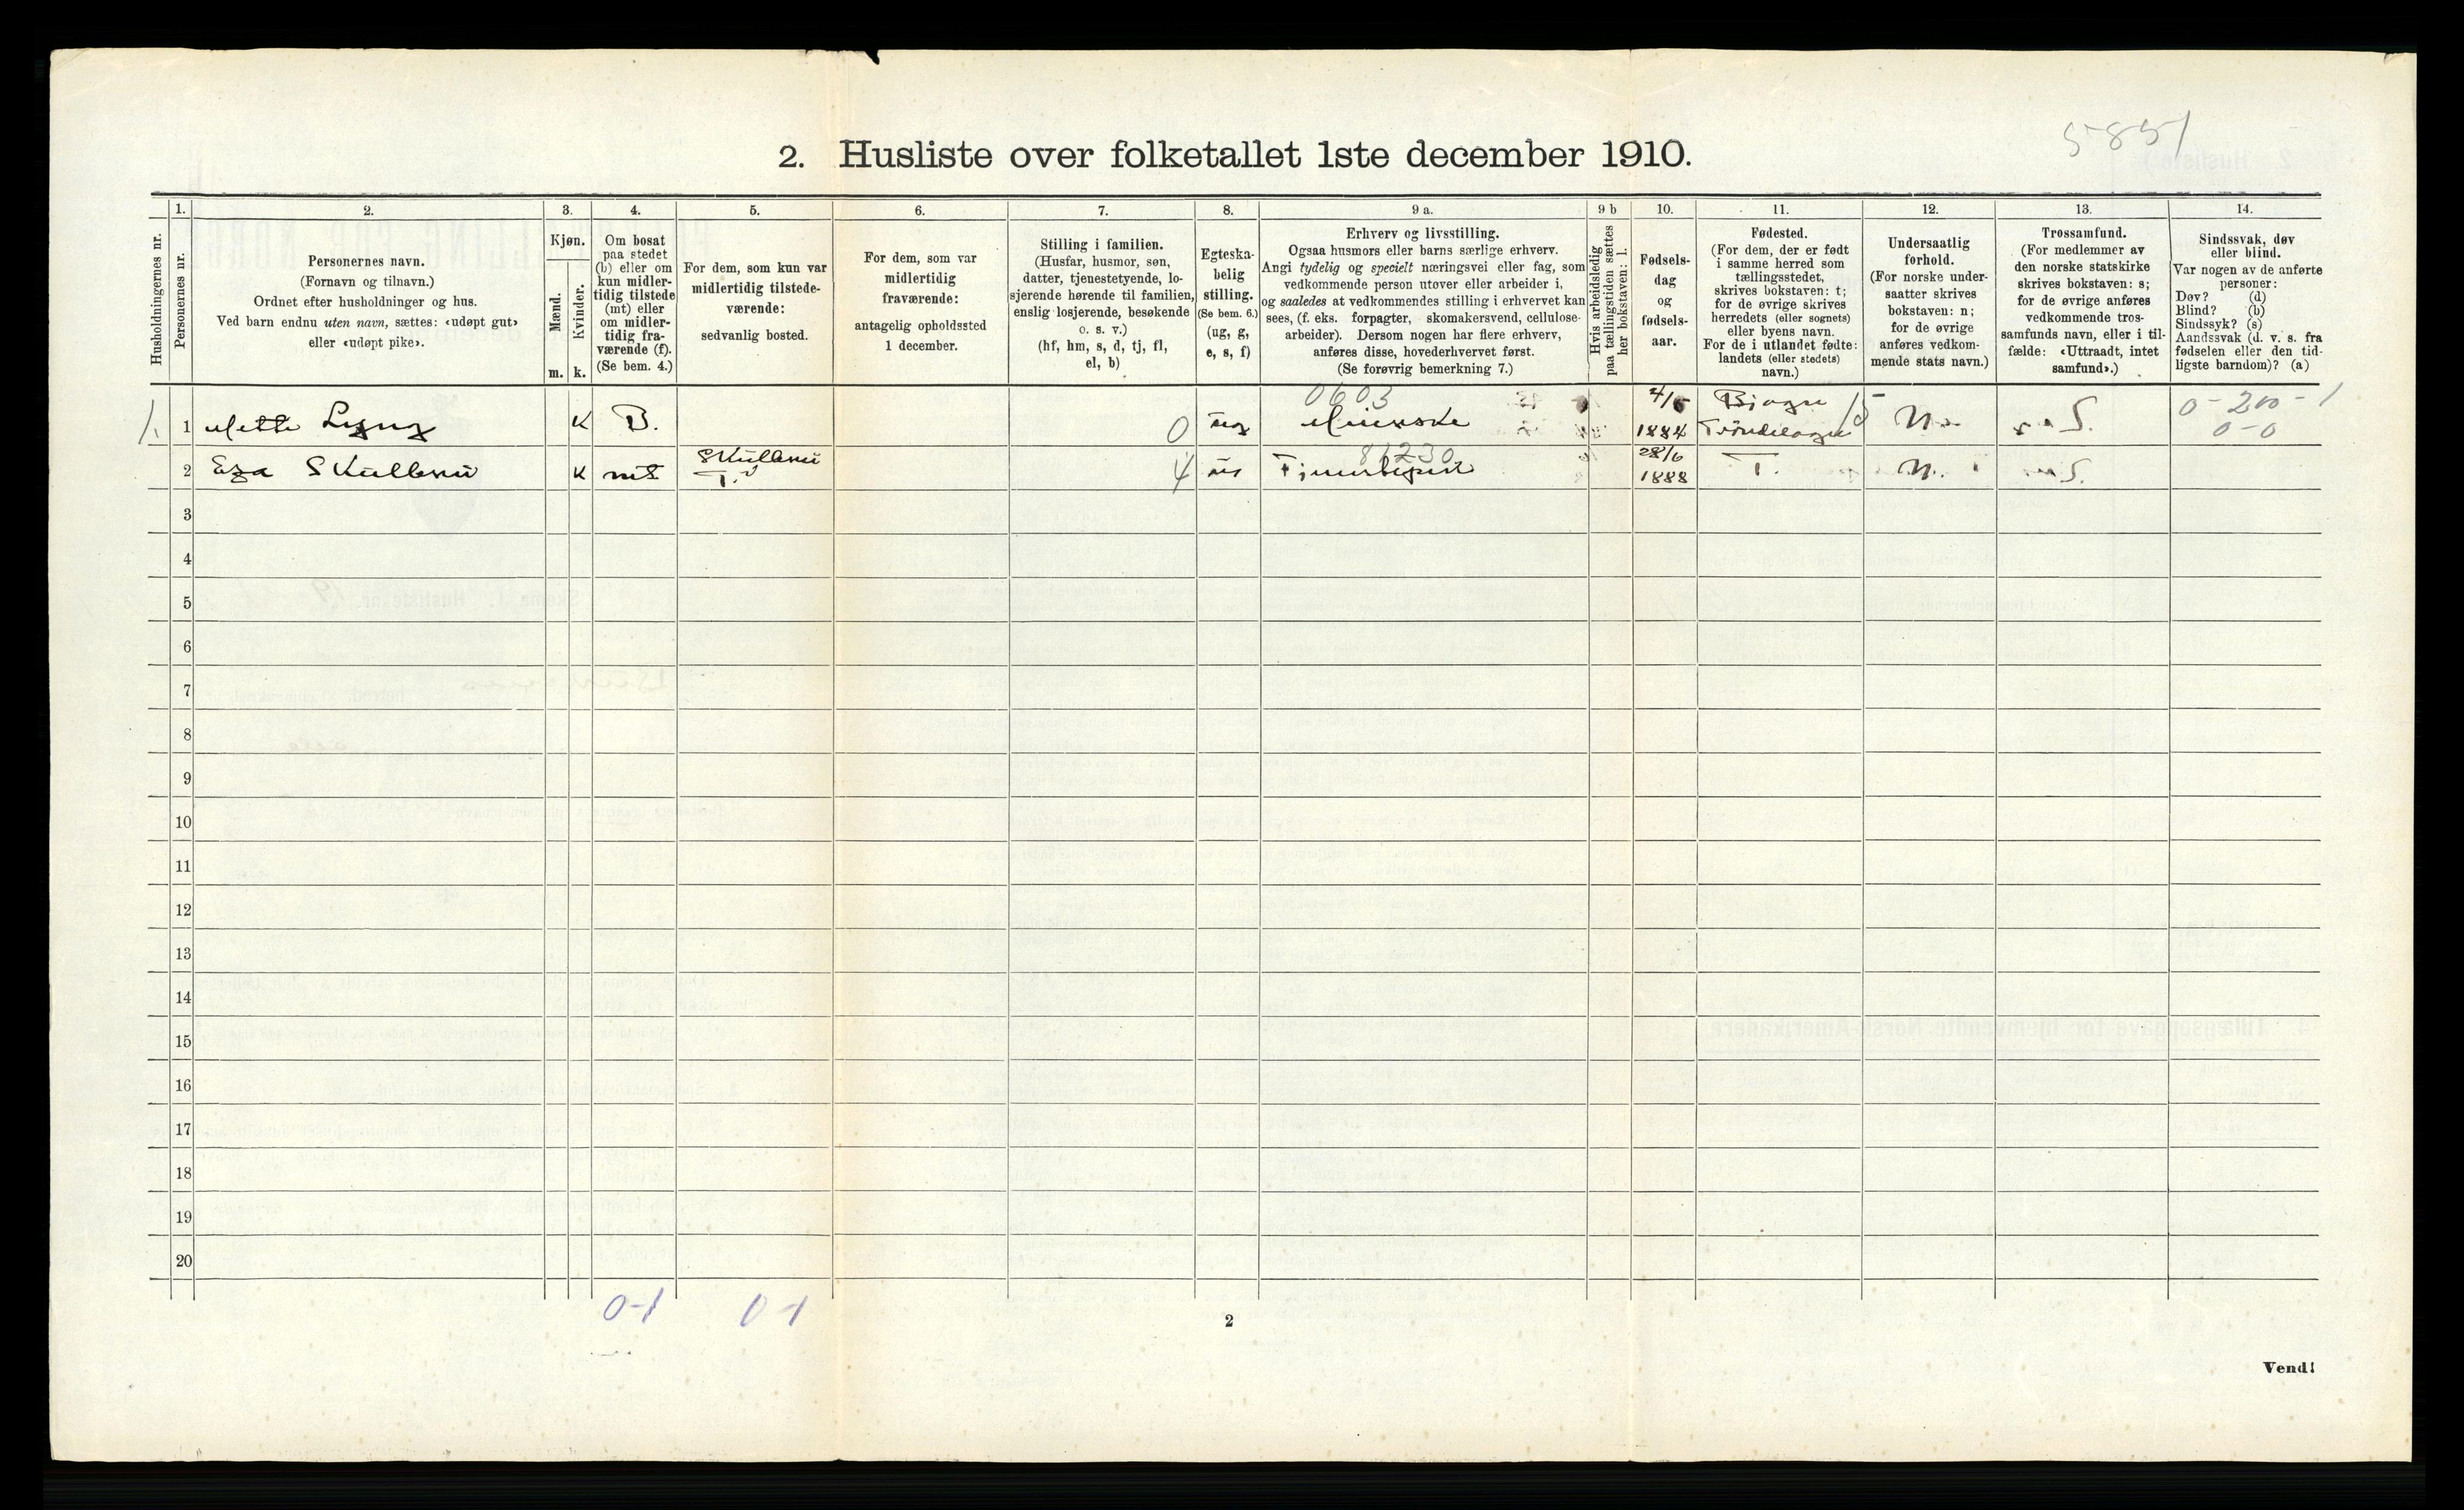 5851
2. Husliste over folketallet 1ste december 1910.
Husholdningernes nr.
1.
Personernes nr.
2.
Personernes navn.
(Fornavn og tilnavn.)
Ordnet efter husholdninger og hus.
Ved barn endnu uten navn, sættes: «udøpt gut»
eller «udøpt pike».
3.
Kjøn.
Mænd.
Kvinder.
m. k.
4.
Om bosat
paa stedet
(b) eller om
kun midler-
tidig tilstede
(mt) eller
om midler-
tidig fra-
værende (f).
(Se bem. 4.)
5.
For dem, som kun var
midlertidig tilstede-
værende:
sedvanlig bosted.
6.
For dem, som var
midlertidig
fraværende:
antagelig opholdssted
1 december.
7.
Stilling i familien.
(Husfar, husmor, søn,
datter, tjenestetyende, lo-
sjerende hørende til familien,
enslig losjerende, besøkende
o. s. v.)
(hf, hm, s, d, tj, fl,
el, b)
8.
Egteska-
belig
stilling.
(Se bem. 6.)
(ug, g,
e, s, f)
9 a.
Erhverv og livsstilling.
Ogsaa husmors eller barns særlige erhverv.
Angi tydelig og specielt næringsvei eller fag, som
vedkommende person utøver eller arbeider i,
og saaledes at vedkommendes stilling i erhvervet kan
sees, (f. eks. forpagter, skomakersvend, cellulose-
arbeider). Dersom nogen har flere erhverv,
anføres disse, hovederhvervet først.
(Se forøvrig bemerkning 7.)
9 b
Hvis arbeidsledig
paa tællingstiden sættes
her bokstaven: l.
10.
Fødsels-
dag
og
fødsels-
aar.
11.
Fødested.
(For dem, der er født
i samme herred som
tællingsstedet,
skrives bokstaven: t;
for de øvrige skrives
herredets (eller sognets)
eller byens navn.
For de i utlandet fødte:
landets (eller stedets)
navn.)
12.
Undersaatlig
forhold.
(For norske under-
saatter skrives
bokstaven: n;
for de øvrige
anføres vedkom-
mende stats navn.)
13.
Trossamfund.
(For medlemmer av
den norske statskirke
skrives bokstaven: s;
for de øvrige anføres
vedkommende tros-
samfunds navn, eller i til-
fælde: «Uttraadt, intet
samfund».)
14.
Sindssvak, døv
eller blind.
Var nogen av de anførte
personer:
Døv? (d)
Blind? (b)
Sindssyk? (s)
Aandssvak (d. v. s. fra
fødselen eller den tid-
ligste barndom)? (a)
1. 1 Mette Lyng K B. 0 ug 0603 4/5 1884 15 N. S. 0-200-1
0-0
2 K mt T. 4 81230 28/6 1888 T. N. S.
3
4
5
6
7
8
9
10
11
12
13
14
15
16
17
18
19
20
0-1 0-1
2
Vend!